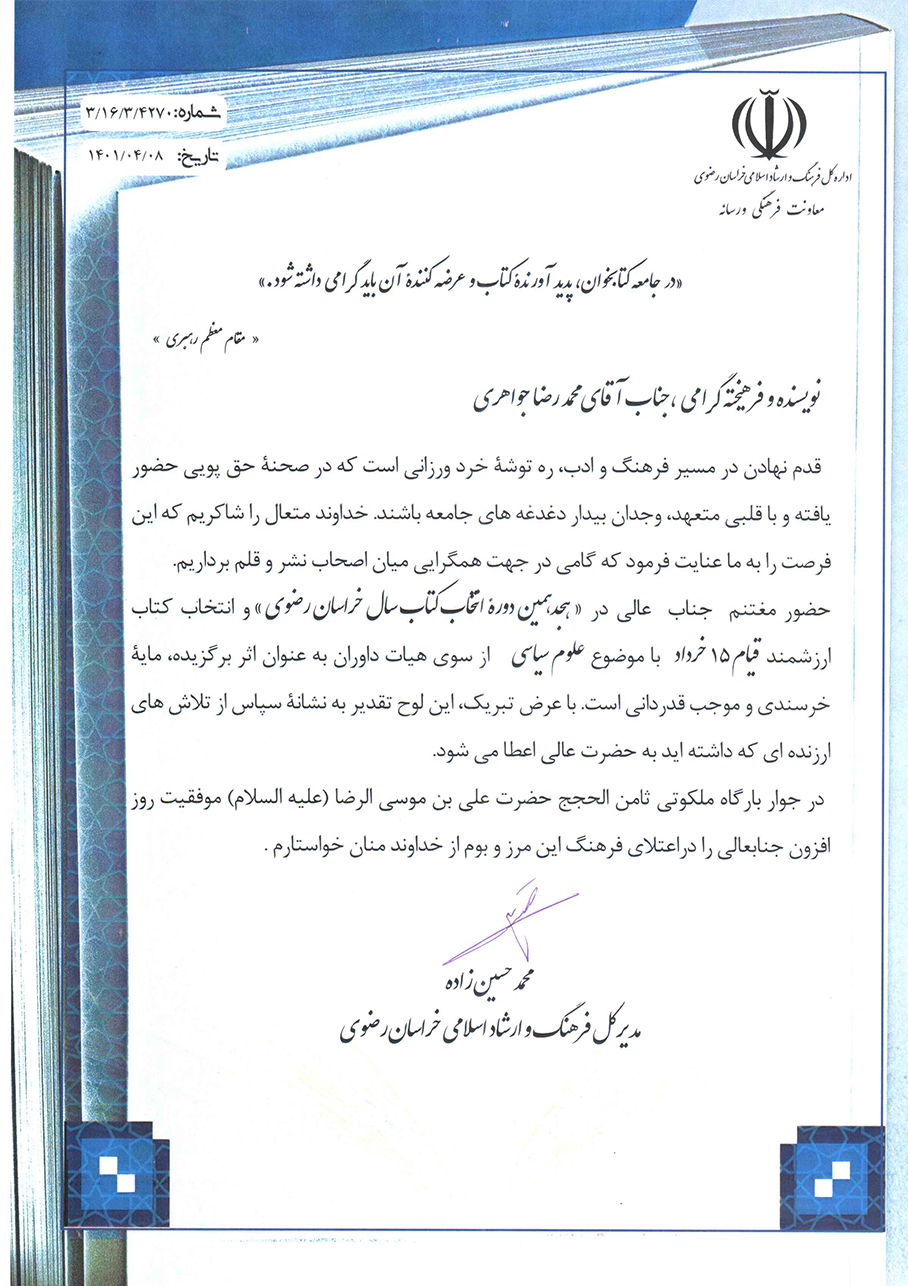 شماره: ۳/۱۶/۳/۴۲۷۰
تاریخ: ۱۴۰۱/۰۴/۰۸
اداره کل فرهنگ و ارشاد اسلامی خراسان رضوی
معاونت فرهنگی و رسانه
«در جامعه کتابخوان، پدید آورندهٔ کتاب و عرضه کنندهٔ آن باید گرامی داشته شود.»
« مقام معظم رهبری »
نویسنده و فرهیختهٔ گرامی ، جناب آقای محمد رضا جواهری
قدم نهادن در مسیر فرهنگ و ادب، ره توشهٔ خرد ورزانی است که در صحنهٔ حق پویی حضور
یافته و با قلبی متعهد، وجدان بیدار دغدغه های جامعه باشند. خداوند متعال را شاکریم که این
فرصت را به ما عنایت فرمود که گامی در جهت همگرایی میان اصحاب نشر و قلم برداریم.
حضور مغتنم جناب عالی در « هجدهمین دورهٔ انتخاب کتاب سال خراسان رضوی » و انتخاب کتاب
ارزشمند قیام ۱۵ خرداد با موضوع علوم سیاسی از سوی هیات داوران به عنوان اثر برگزیده، مایهٔ
خرسندی و موجب قدردانی است. با عرض تبریک، این لوح تقدیر به نشانهٔ سپاس از تلاش های
ارزنده ای که داشته اید به حضرت عالی اعطا می شود.
در جوار بارگاه ملکوتی ثامن الحجج حضرت علی بن موسی الرضا (علیه السلام) موفقیت روز
افزون جنابعالی را دراعتلای فرهنگ این مرز و بوم از خداوند منان خواستارم .
محمد حسین زاده
مدیر کل فرهنگ و ارشاد اسلامی خراسان رضوی